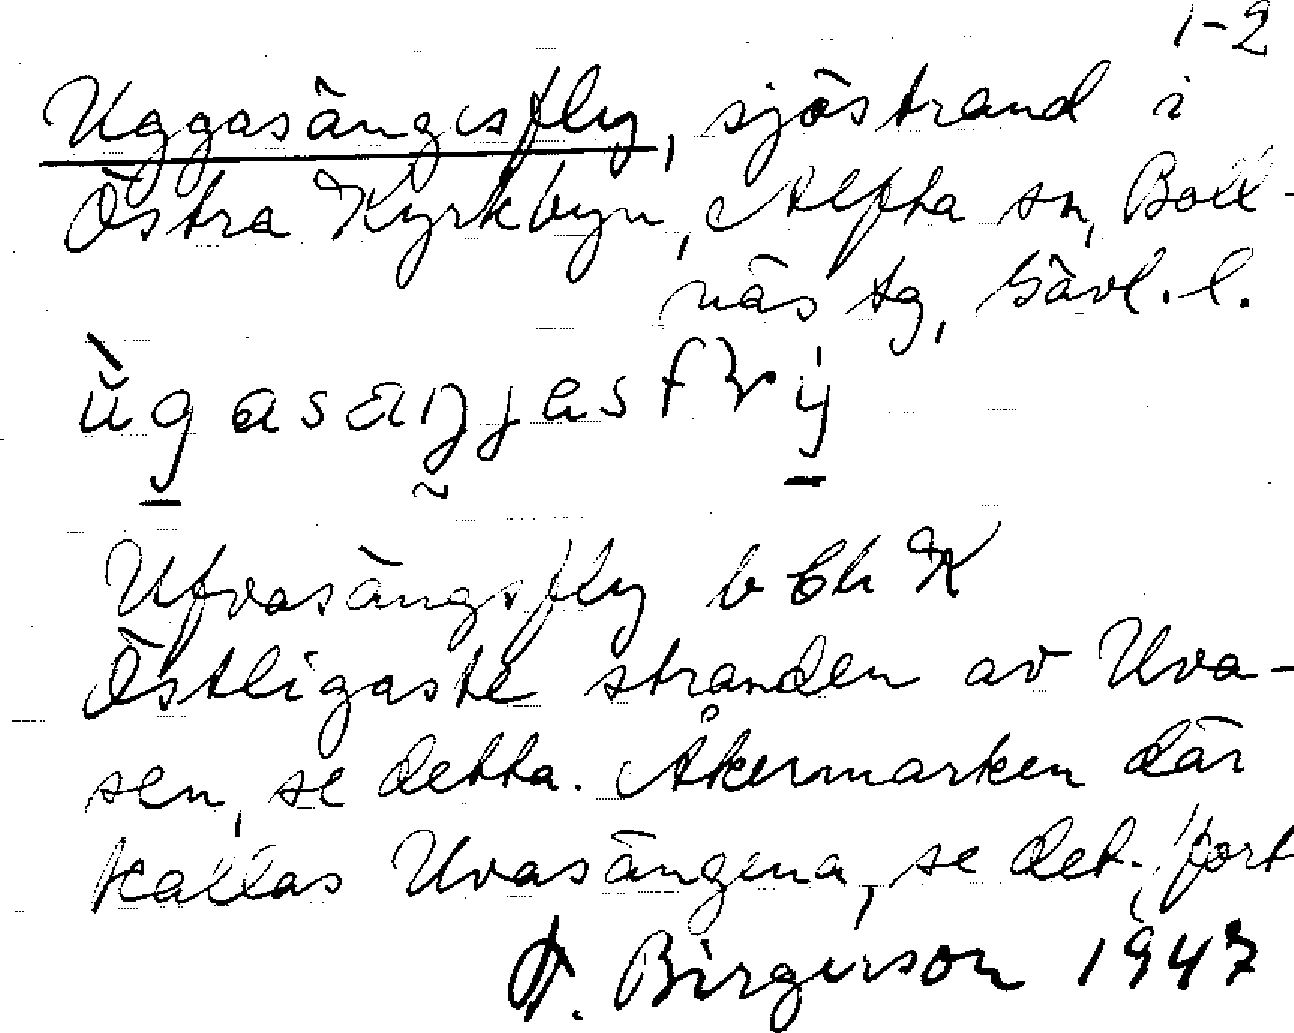 1-2
Uggasängsfly, sjöstrand i
Östra Kyrkbyn, Alfta sn, Boll-
näs tg, Gävl. l.
Ufvasängsfly b Ch K
Östligaste stranden av Uva-
sen, se detta. Åkermarken där
kallas Uvasängena, se det. fort
F. Birgerson 1947